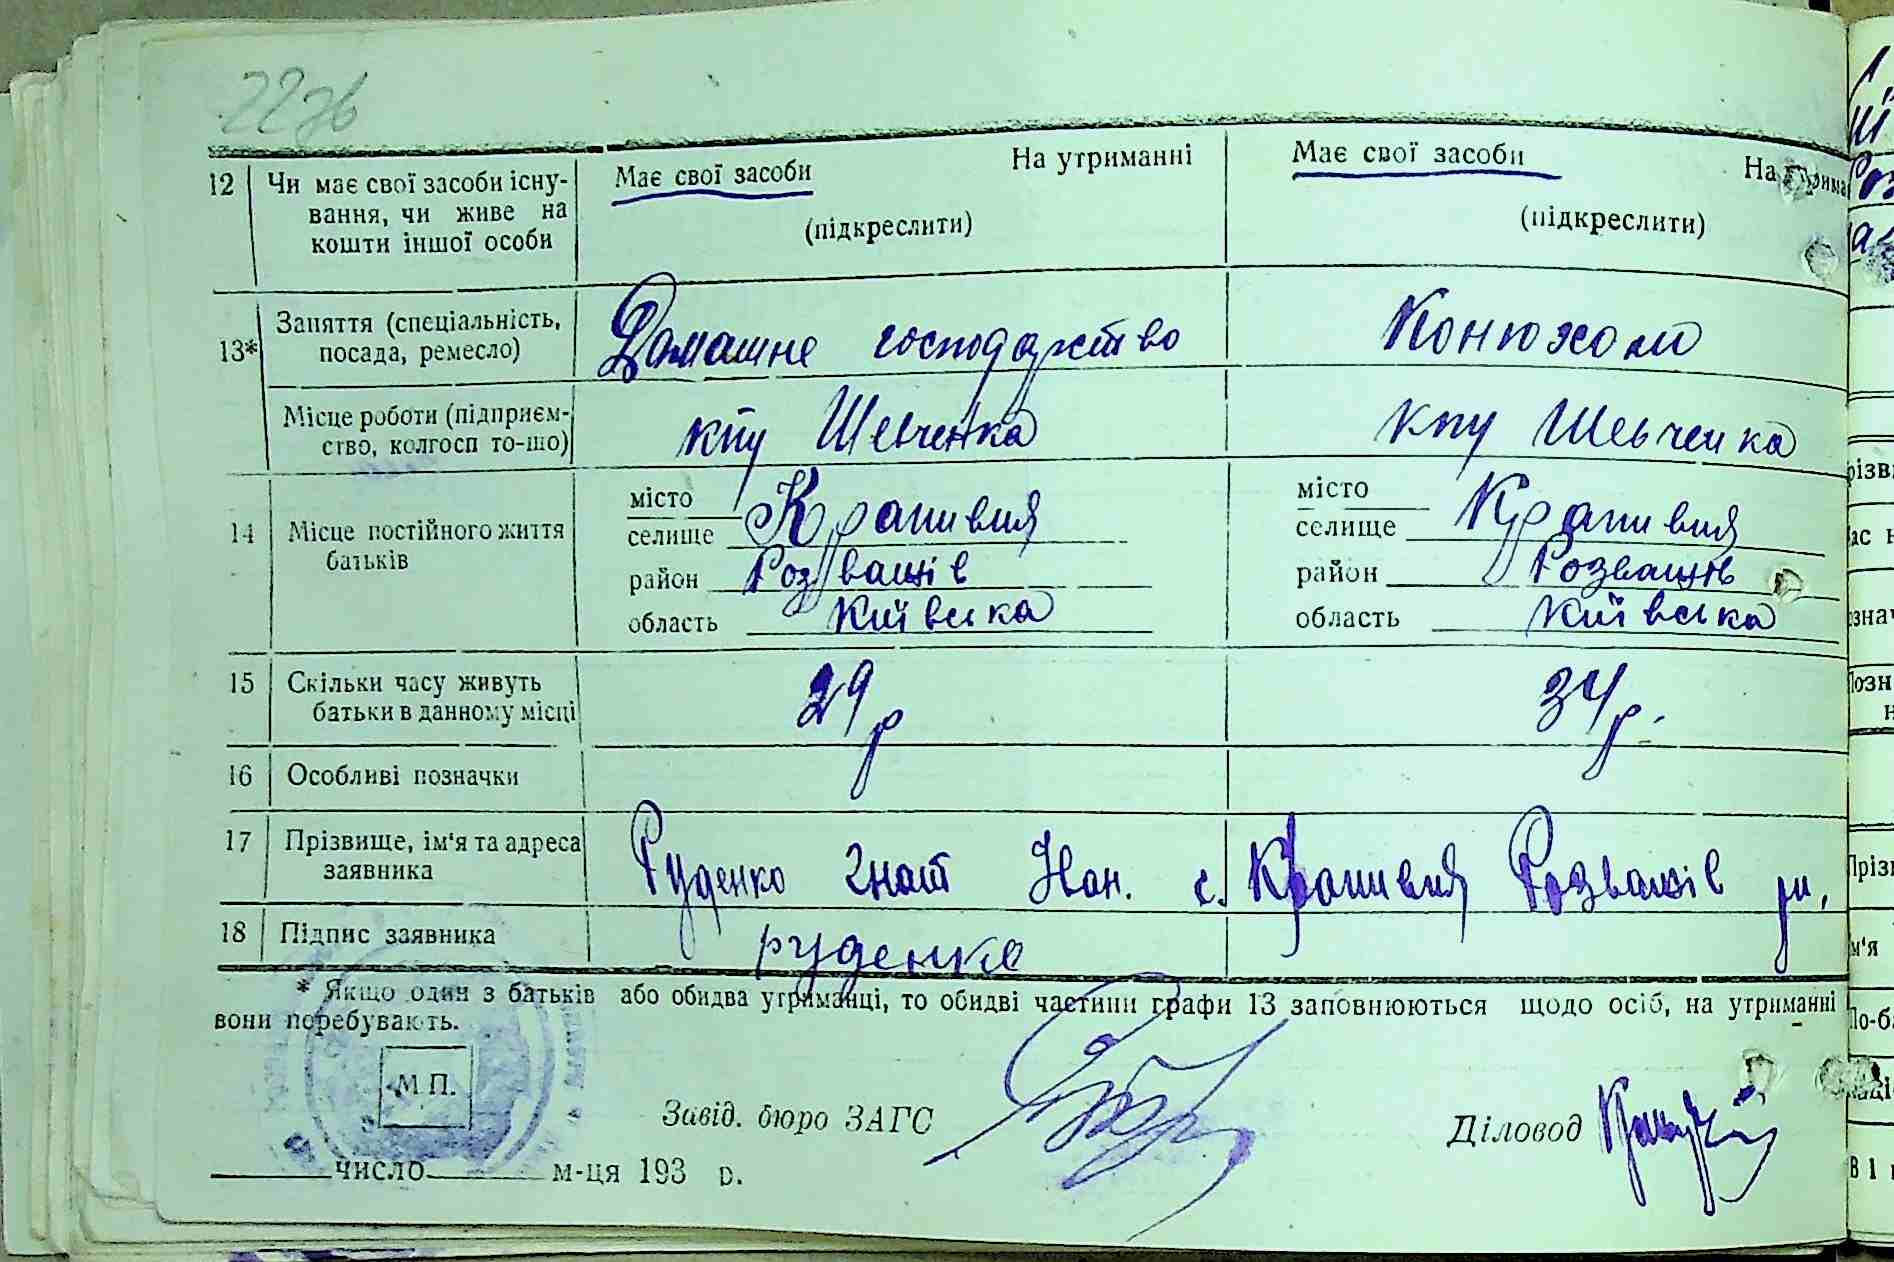 22 зв
12 Чи має свої засоби існу- Має свої засоби На утриманні Має свої засоби На
вання, чи живе на (підкреслити) (підкреслити)
кошти іншої особи
13* Заняття (спеціальність, Домашне господарство Конюхом
посада, ремесло)
Місце роботи (підприєм- кпу Шевченка кпу Шевченка
ство, колгосп то-що)
14 Місце постійного життя батьків
місто Крапивня місто Крапивня
селище селище
район Розважів район Розважів
область Київська область Київська
15 Скільки часу живуть 29 р 34 р.
батьки в данному місці
16 Особливі позначки
17 Прізвище, ім'я та адреса Руденко Гнат с. Крапивня Розважів рн.
заявника
18 Підпис заявника руденко
* Якщо один з батьків або обидва утриманці, то обидві частини графи 13 заповнюються щодо осіб, на утриманні
вони перебувають.
М П.
Завід. бюро ЗАГС Діловод
число м-ця 193 р.